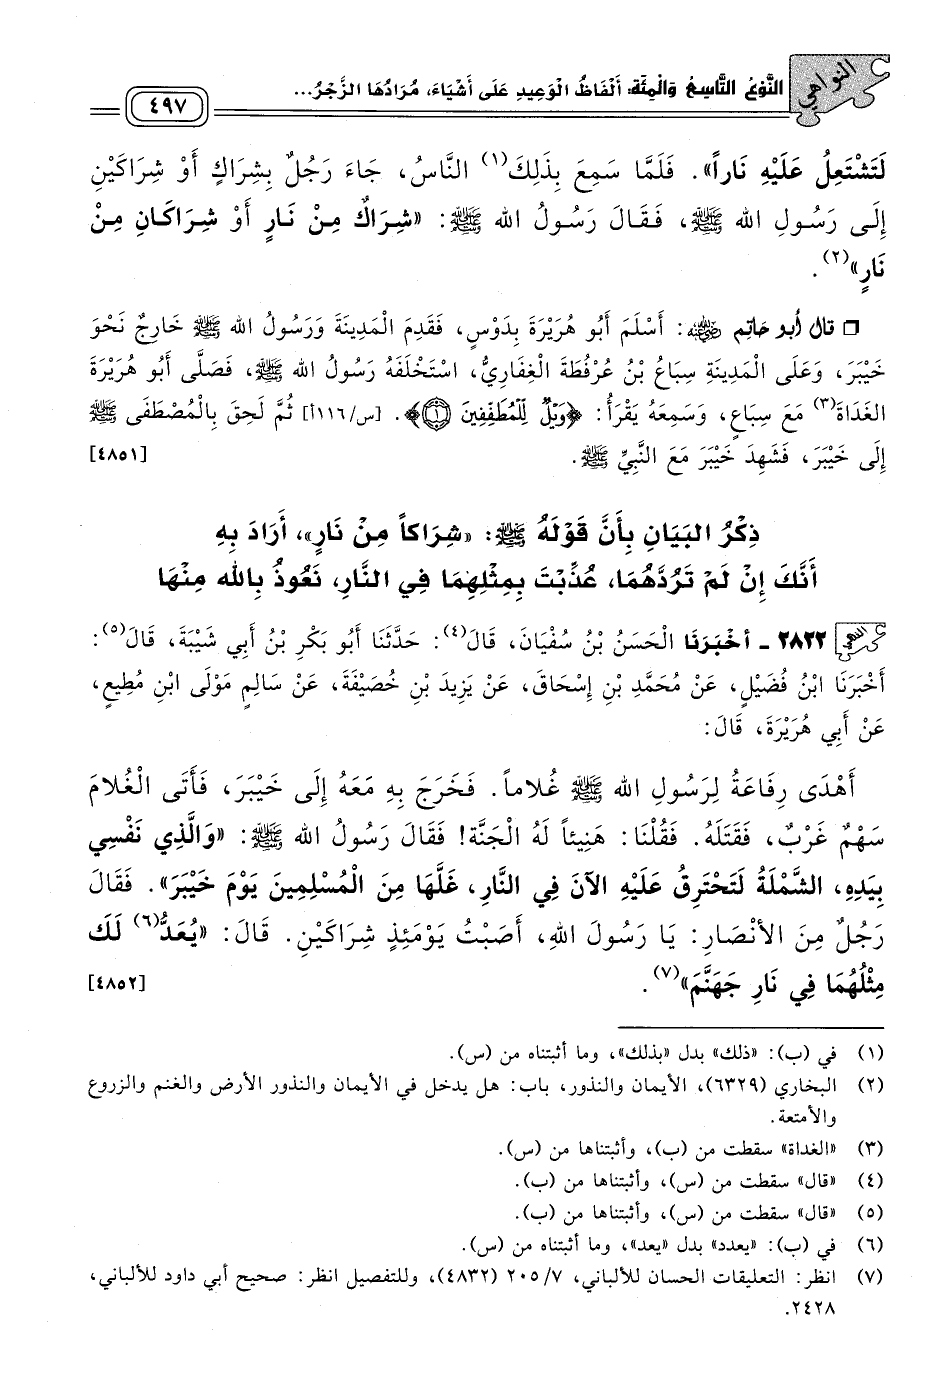 النواهي
النَّوْعُ التَّاسِعُ وَالْمِئَة: أَلْفَاظُ الْوَعِيدِ عَلَى أَشْيَاءَ، مُرَادُهَا الزَّجْرُ...
٤٩٧
لَتَشْتَعِلُ عَلَيْهِ نَاراً». فَلَمَّا سَمِعَ بِذَلِكَ(١) النَّاسُ، جَاءَ رَجُلٌ بِشِرَاكٍ أَوْ شِرَاكَيْنِ
إِلَى رَسُولِ الله ﷺ، فَقَالَ رَسُولُ الله ﷺ: «شِرَاكٌ مِنْ نَارٍ أَوْ شِرَاكَانِ مِنْ
نَارٍ»(٢).
❒ قال أبو حاتم رضي الله عنه: أَسْلَمَ أَبُو هُرَيْرَةَ بِدَوْسٍ، فَقَدِمَ الْمَدِينَةَ وَرَسُولُ الله ﷺ خَارِجٌ نَحْوَ
خَيْبَرَ، وَعَلَى الْمَدِينَةِ سِبَاعُ بْنُ عُرْفُطَةَ الْغِفَارِيُّ، اسْتَخْلَفَهُ رَسُولُ الله ﷺ، فَصَلَّى أَبُو هُرَيْرَةَ
الغَدَاةَ(٣) مَعَ سِبَاعٍ، وَسَمِعَهُ يَقْرَأُ: ﴿وَيْلٌ لِّلْمُطَفِّفِينَ ۝١﴾. [س/١١٦أ] ثُمَّ لَحِقَ بِالْمُصْطَفَى ﷺ
إِلَى خَيْبَرَ، فَشَهِدَ خَيْبَرَ مَعَ النَّبِيِّ ﷺ. [٤٨٥١]
ذِكْرُ البَيَانِ بِأَنَّ قَوْلَهُ ﷺ: «شِرَاكاً مِنْ نَارٍ»، أَرَادَ بِهِ
أَنَّكَ إِنْ لَمْ تَرُدَّهُمَا، عُذِّبْتَ بِمِثْلِهِمَا فِي النَّارِ، نَعُوذُ بِالله مِنْهَا
٢٨٢٢ - أخْبَرَنَا الْحَسَنُ بْنُ سُفْيَانَ، قَالَ(٤): حَدَّثَنَا أَبُو بَكْرِ بْنُ أَبِي شَيْبَةَ، قَالَ(٥):
أَخْبَرَنَا ابْنُ فُضَيْلٍ، عَنْ مُحَمَّدِ بْنِ إِسْحَاقَ، عَنْ يَزِيدَ بْنِ خُصَيْفَةَ، عَنْ سَالِمٍ مَوْلَى ابْنِ مُطِيعٍ،
عَنْ أَبِي هُرَيْرَةَ، قَالَ:
أَهْدَى رِفَاعَةُ لِرَسُولِ الله ﷺ غُلاماً. فَخَرَجَ بِهِ مَعَهُ إِلَى خَيْبَرَ، فَأَتَى الْغُلامَ
سَهْمٌ غَرْبٌ، فَقَتَلَهُ. فَقُلْنَا: هَنِيئاً لَهُ الْجَنَّةُ! فَقَالَ رَسُولُ الله ﷺ: «وَالَّذِي نَفْسِي
بِيَدِهِ، الشَّمْلَةُ لَتَحْتَرِقُ عَلَيْهِ الآنَ فِي النَّارِ، غَلَّهَا مِنَ الْمُسْلِمِينَ يَوْمَ خَيْبَرَ». فَقَالَ
رَجُلٌ مِنَ الأَنْصَارِ: يَا رَسُولَ اللهِ، أَصَبْتُ يَوْمَئِذٍ شِرَاكَيْنِ. قَالَ: «يُعَدُّ(٦) لَكَ
مِثْلُهُمَا فِي نَارِ جَهَنَّمَ»(٧). [٤٨٥٢]
(١) في (ب): «ذلك» بدل «بذلك»، وما أثبتناه من (س).
(٢) البخاري (٦٣٢٩)، الأيمان والنذور، باب: هل يدخل في الأيمان والنذور الأرض والغنم والزروع
والأمتعة.
(٣) «الغداة» سقطت من (ب)، وأثبتناها من (س).
(٤) «قال» سقطت من (س)، وأثبتناها من (ب).
(٥) «قال» سقطت من (س)، وأثبتناها من (ب).
(٦) في (ب): «يعدد» بدل «يعد»، وما أثبتناه من (س).
(٧) انظر: التعليقات الحسان للألباني، ٢٠٥/٧ (٤٨٣٢)، وللتفصيل انظر: صحيح أبي داود للألباني،
٢٤٢٨.